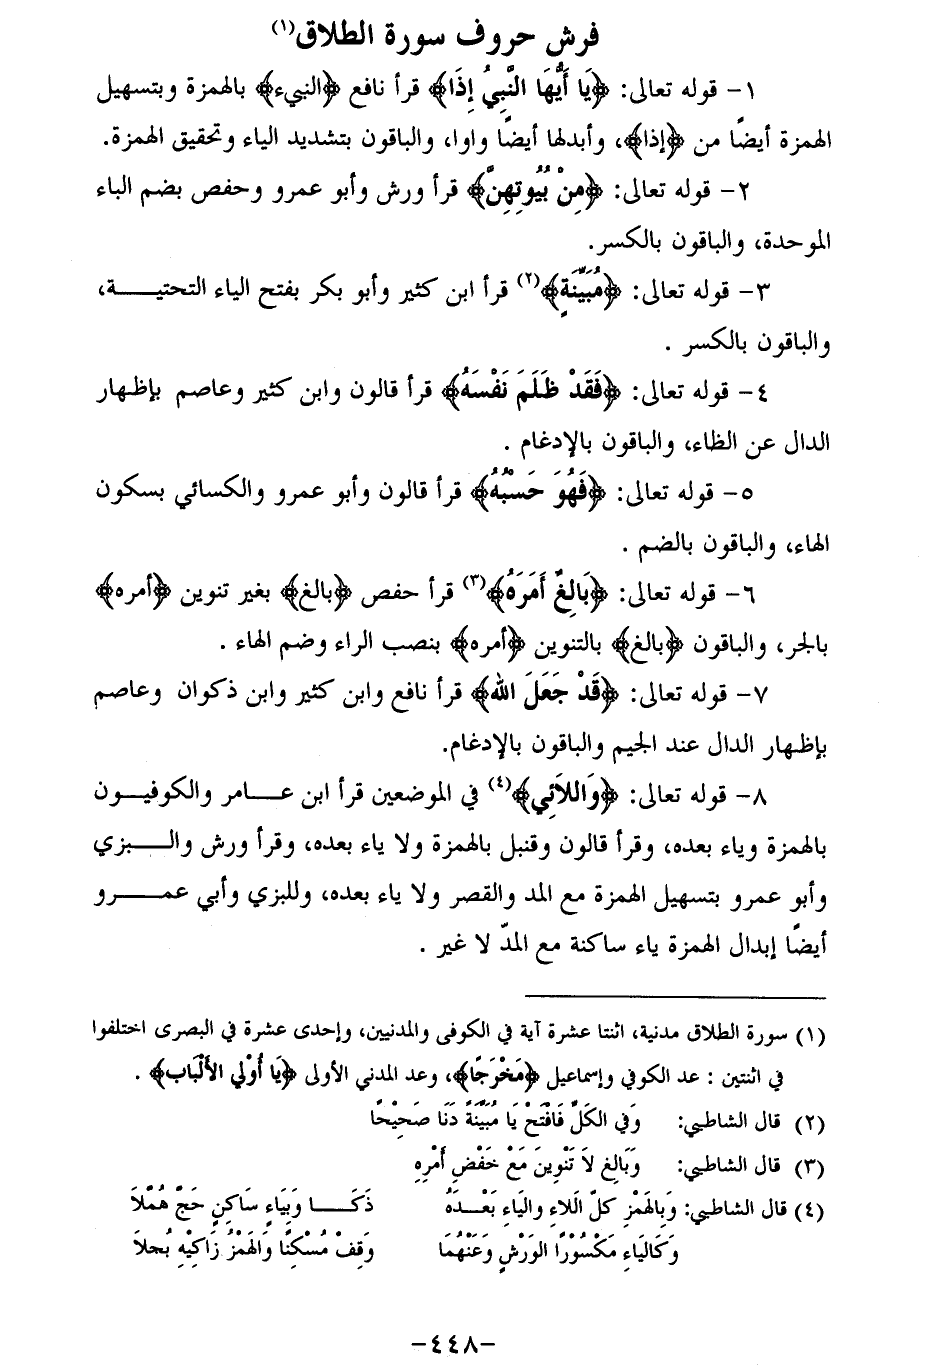 فرش حروف سورة الطلاق(١)
١- قوله تعالى: ﴿يَا أَيُّهَا النَّبِيُ إِذَا﴾ قرأ نافع ﴿النبيء﴾ بالهمزة وبتسهيل
الهمزة أيضًا من ﴿إذا﴾، وأبدلها أيضًا واوا، والباقون بتشديد الياء وتحقيق الهمزة.
٢- قوله تعالى: ﴿مِنْ بُيُوتِهِنَّ﴾ قرأ ورش وأبو عمرو وحفص بضم الباء
الموحدة، والباقون بالكسر.
٣- قوله تعالى: ﴿مُبَيِّنَةٍ﴾(٢) قرأ ابن كثير وأبو بكر بفتح الياء التحتيـــة،
والباقون بالكسر .
٤- قوله تعالى: ﴿فَقَدْ ظَلَمَ نَفْسَهُ﴾ قرأ قالون وابن كثير وعاصم بإظهار
الدال عن الظاء، والباقون بالإدغام .
٥- قوله تعالى: ﴿فَهُوَ حَسْبُهُ﴾ قرأ قالون وأبو عمرو والكسائي بسكون
الهاء، والباقون بالضم .
٦- قوله تعالى: ﴿بَالِغٌ أَمَرَهُ﴾(٣) قرأ حفص ﴿بالغ﴾ بغير تنوين ﴿أمره﴾
بالجر، والباقون ﴿بالغ﴾ بالتنوين ﴿أمره﴾ بنصب الراء وضم الهاء .
٧- قوله تعالى: ﴿قَدْ جَعَلَ الله﴾ قرأ نافع وابن كثير وابن ذكوان وعاصم
بإظهار الدال عند الجيم والباقون بالإدغام.
٨- قوله تعالى: ﴿وَاللاَئِي﴾(٤) في الموضعين قرأ ابن عـــامر والكوفيـــون
بالهمزة وياء بعده، وقرأ قالون وقنبل بالهمزة ولا ياء بعده، وقرأ ورش والـــبزي
وأبو عمرو بتسهيل الهمزة مع المد والقصر ولا ياء بعده، وللبزي وأبي عمـــرو
أيضًا إبدال الهمزة ياء ساكنة مع المدّ لا غير .
(١) سورة الطلاق مدنية، اثنتا عشرة آية في الكوفى والمدنيين، وإحدى عشرة في البصرى اختلفوا
في اثنتين : عد الكوفي وإسماعيل ﴿مَخْرَجًا﴾، وعد المدني الأولى ﴿يَا أُوْلي الأَلْبَاب﴾ .
(٢) قال الشاطبي: وَفي الكَلِّ فَافْتَحْ يَا مُبَيِّنَةً دَنَا صَحِيْحًا
(٣) قال الشاطبي: وَبَالِغ لاَ تَنْوِينَ مَعْ خَفْضِ أَمْرِهِ
(٤) قال الشاطبي: وَبِالهَمْزِ كلّ الَلاءِ والياءِ بَعْـدَهُ ذَكَـــا وَبِيَاءٍ سَاكِنٍ حَجَّ هُمَّلاَ
وَكَاليَاءِ مَكْسُوْرًا الوَرْشٍ وَعَنْهُمَا وَقِفْ مُسْكِنًا وَالهَمْزُ زَاكِيْهِ بُجلاَ
-٤٤٨-